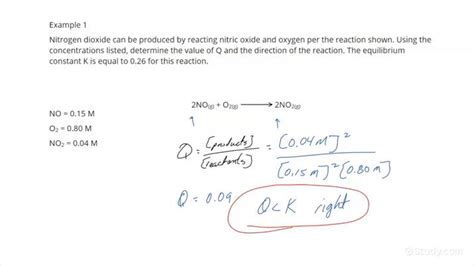 Example 1
Nitrogen dioxide can be produced by reacting nitric oxide and oxygen per the reaction shown. Using the
concentrations listed, determine the value of Q and the direction of the reaction. The equilibrium
constant K is equal to 0.26 for this reaction.
NO = 0.15 M
O₂ = 0.80 M
NO₂ = 0.04 M
2NO(g) + O₂(g) ⟶ 2NO₂(g)
Q = [products] / [reactants] = [0.04M]² / [0.15M]² [0.80M]
Q = 0.09
Q<K right
Study.com